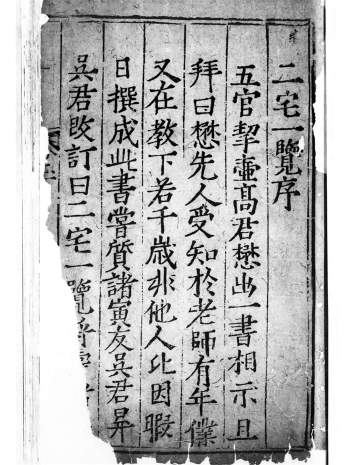 二宅一覽序
五官挈壷髙君懋出一書相示且
拜曰懋先人受知於老師有年僕
又在教下若千歲非他人比因暇
日撰成此書嘗質諸寅友吳君昇
吳君改訂曰二宅一覽